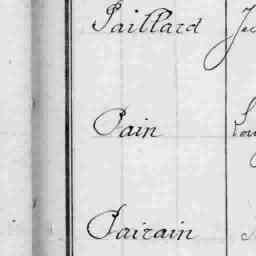 Paillard
Pain
Pairain